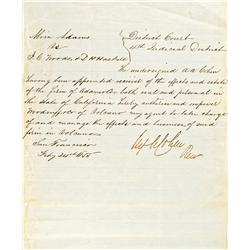 Alvin Adams
vs
I. C. Woods & D H Haskell
District Court
4th Judicial District
The undersigned A A Cohen
having been appointed receiver of the effects and estate
of the firm of Adams & Co both real and personal in
the State of California hereby authorize and empower
of Volcano my agent to take charge
of and manage the effects and business of said
firm in Volcano
San Francisco
Feby 24th 1855
A A Cohen
Rec